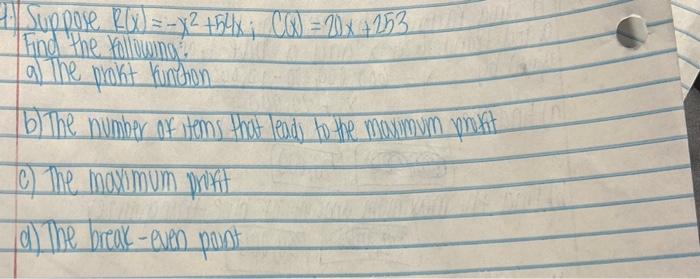 1.) Suppose R(x) = -x² + 54x; C(x) = 20x + 253
Find the following:
a) The profit function
b) The number of items that leads to the maximum profit
c) The maximum profit
d) The break-even point